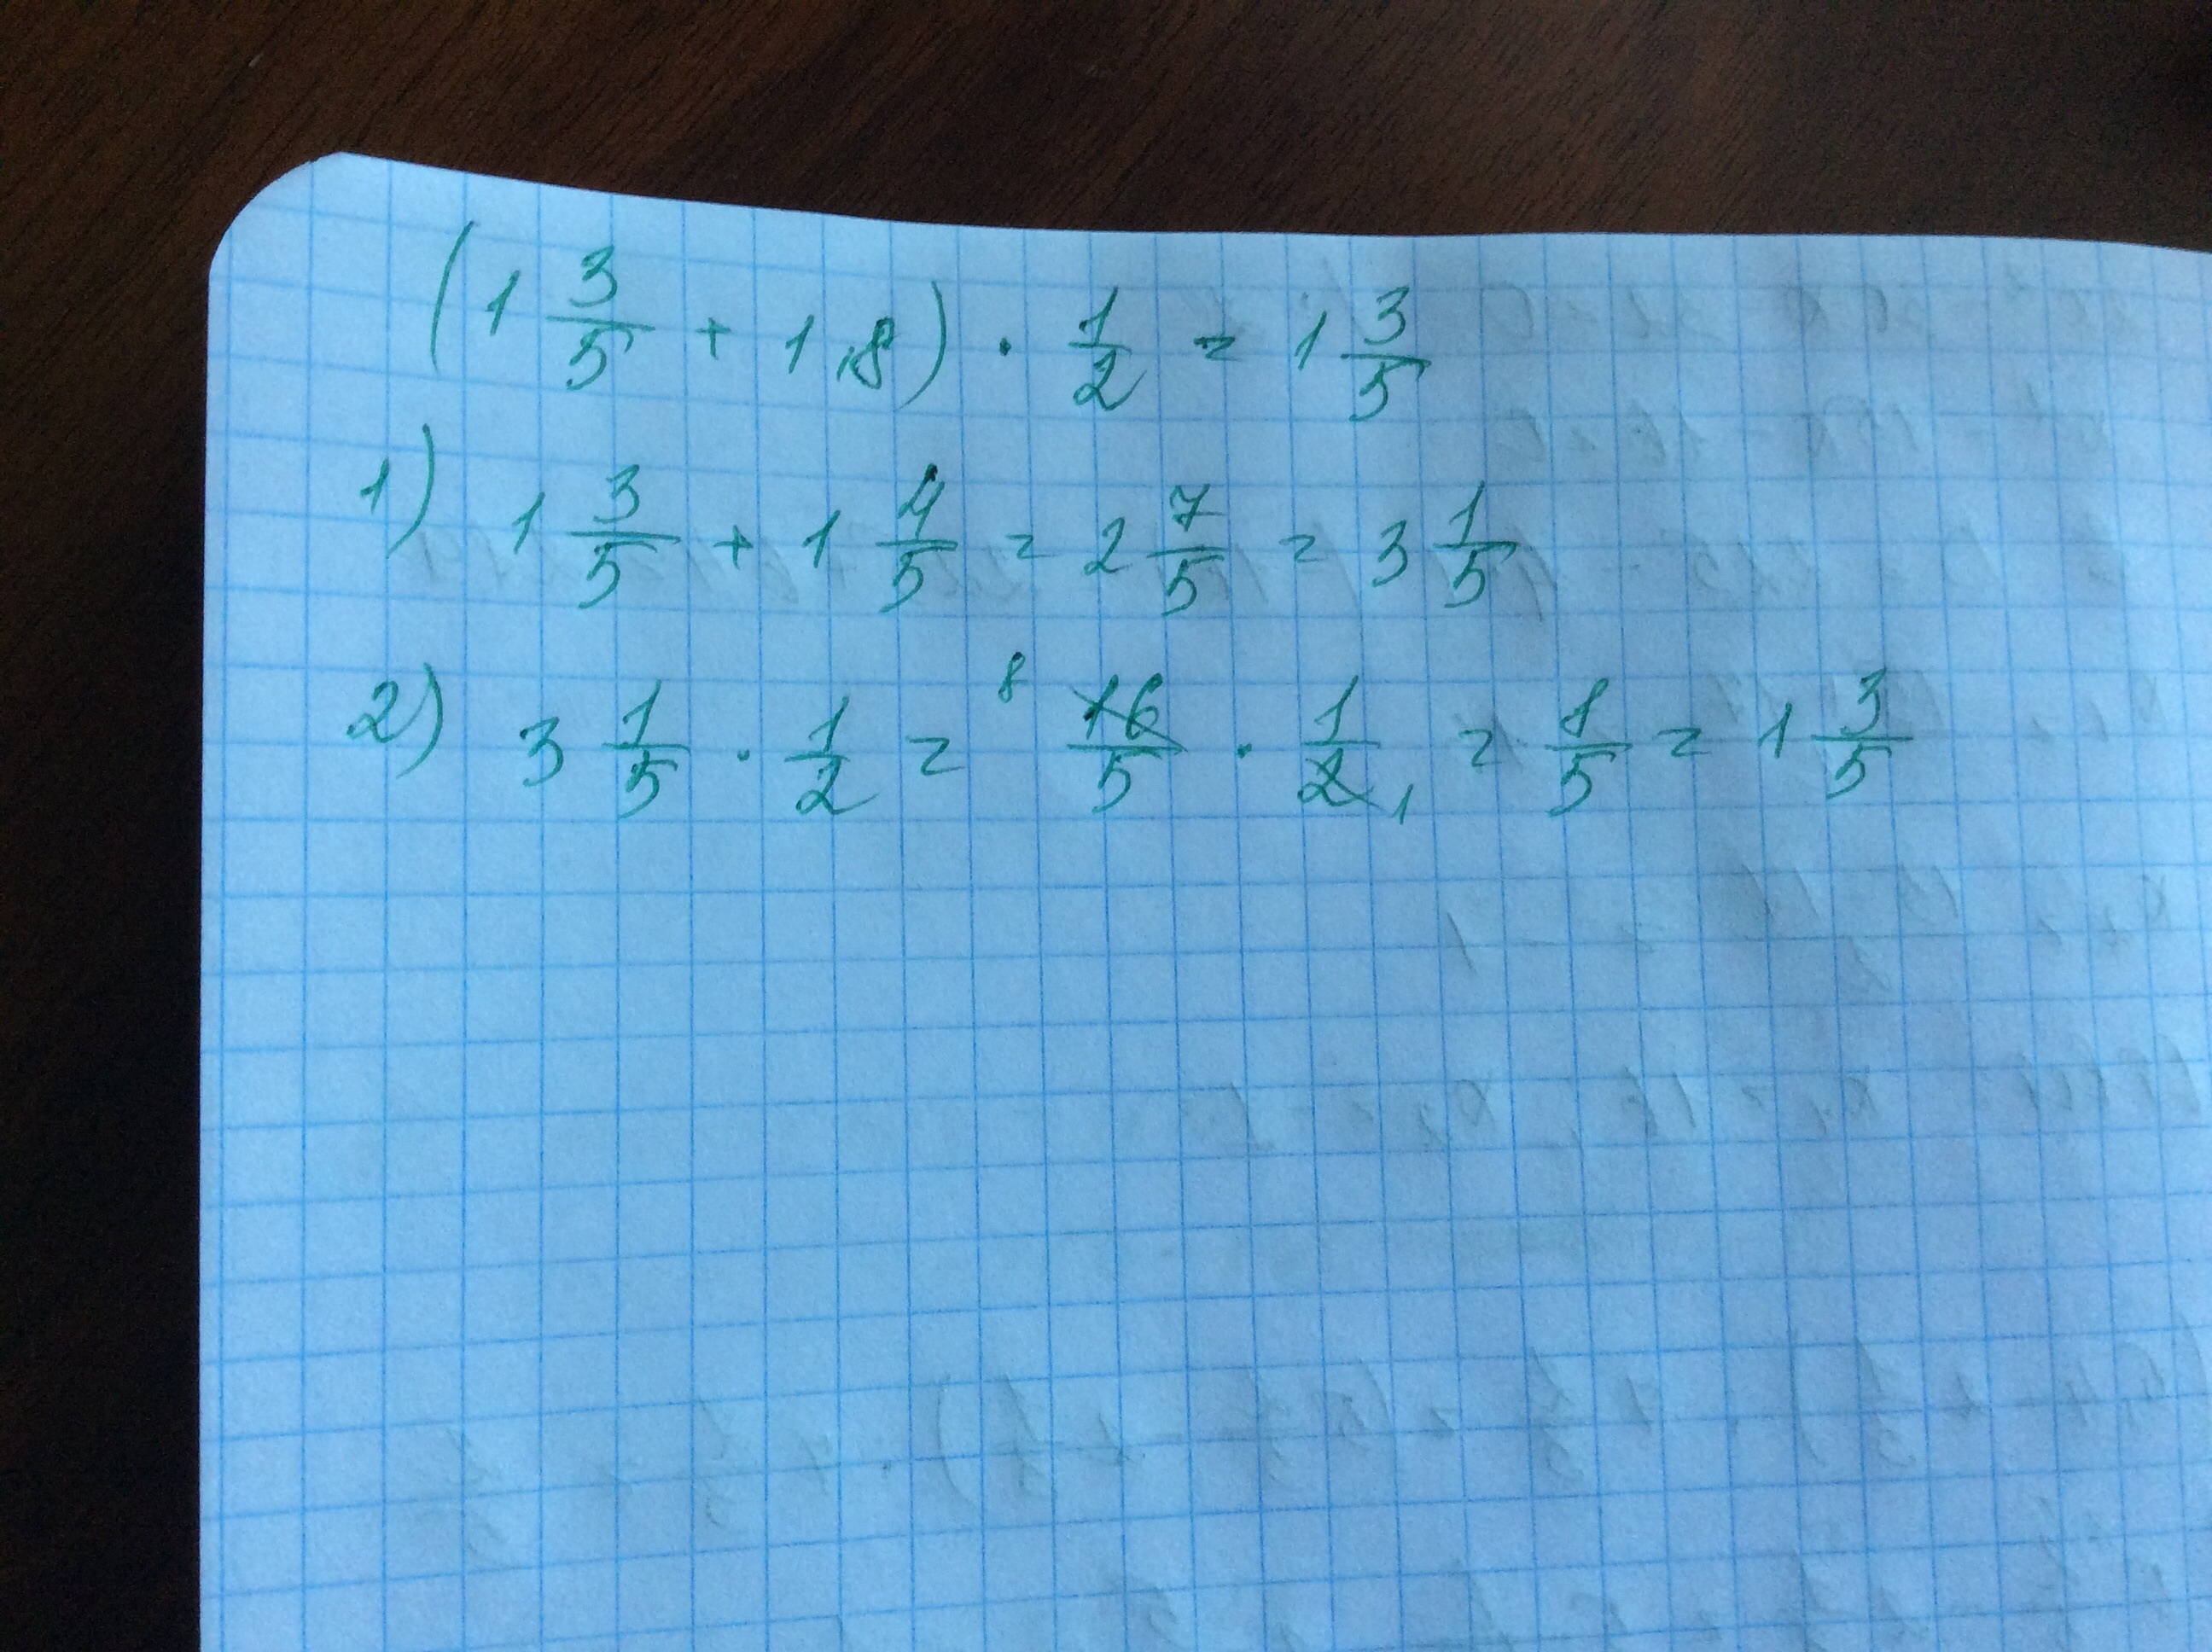 (1 3/5 + 1,8) · 1/2 = 1 3/5
1) 1 3/5 + 1 4/5 = 2 7/5 = 3 1/5
2) 3 1/5 · 1/2 = 8 16/5 · 1/2 1 = 8/5 = 1 3/5